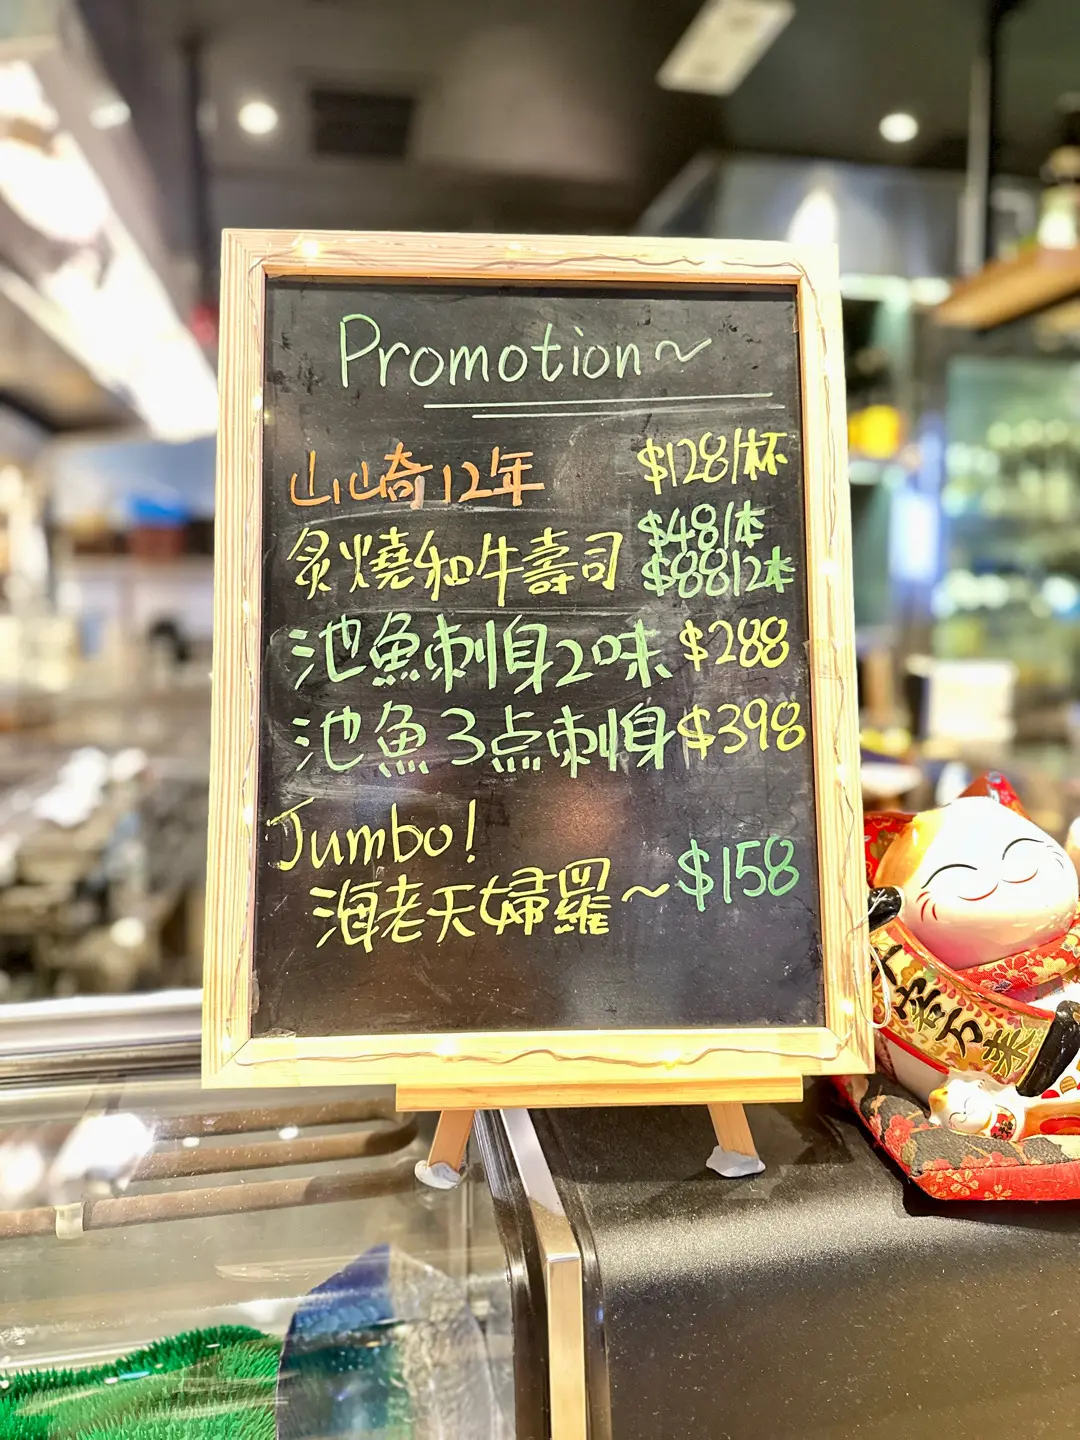 Promotion~
山崎12年 $128/杯
炙燒和牛壽司 $48/本
$88/2本
池魚刺身2味 $288
池魚3点刺身 $398
Jumbo!
海老天婦羅~ $158
千客万来